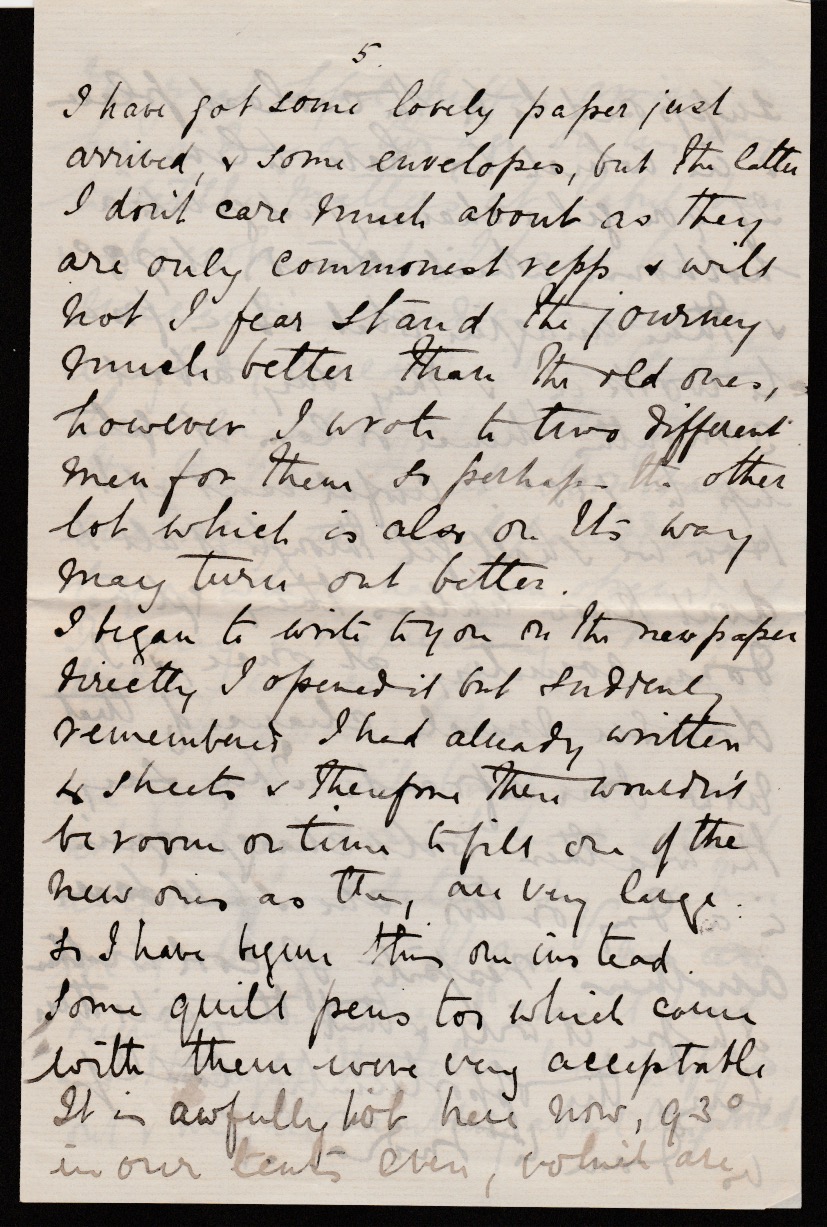 5.
I have got some lovely paper just
arrived, & some envelopes, but the latter
I don't care much about as they
are only commonest repp & will
not I fear stand the journey
much better than the old ones,
however I wrote to two different
men for them so perhaps the other
lot which is also on its way
may turn out better.
I began to write to you on the new paper
directly I opened it but suddenly
remembered I had already written
4 sheets & therefore there wouldn't
be room or time to fill one of the
new ones as they are very large.
So I have begun this one instead.
Some quill pens too which came
with them were very acceptable
It is awfully hot here now, 93°
in our tents even, which are